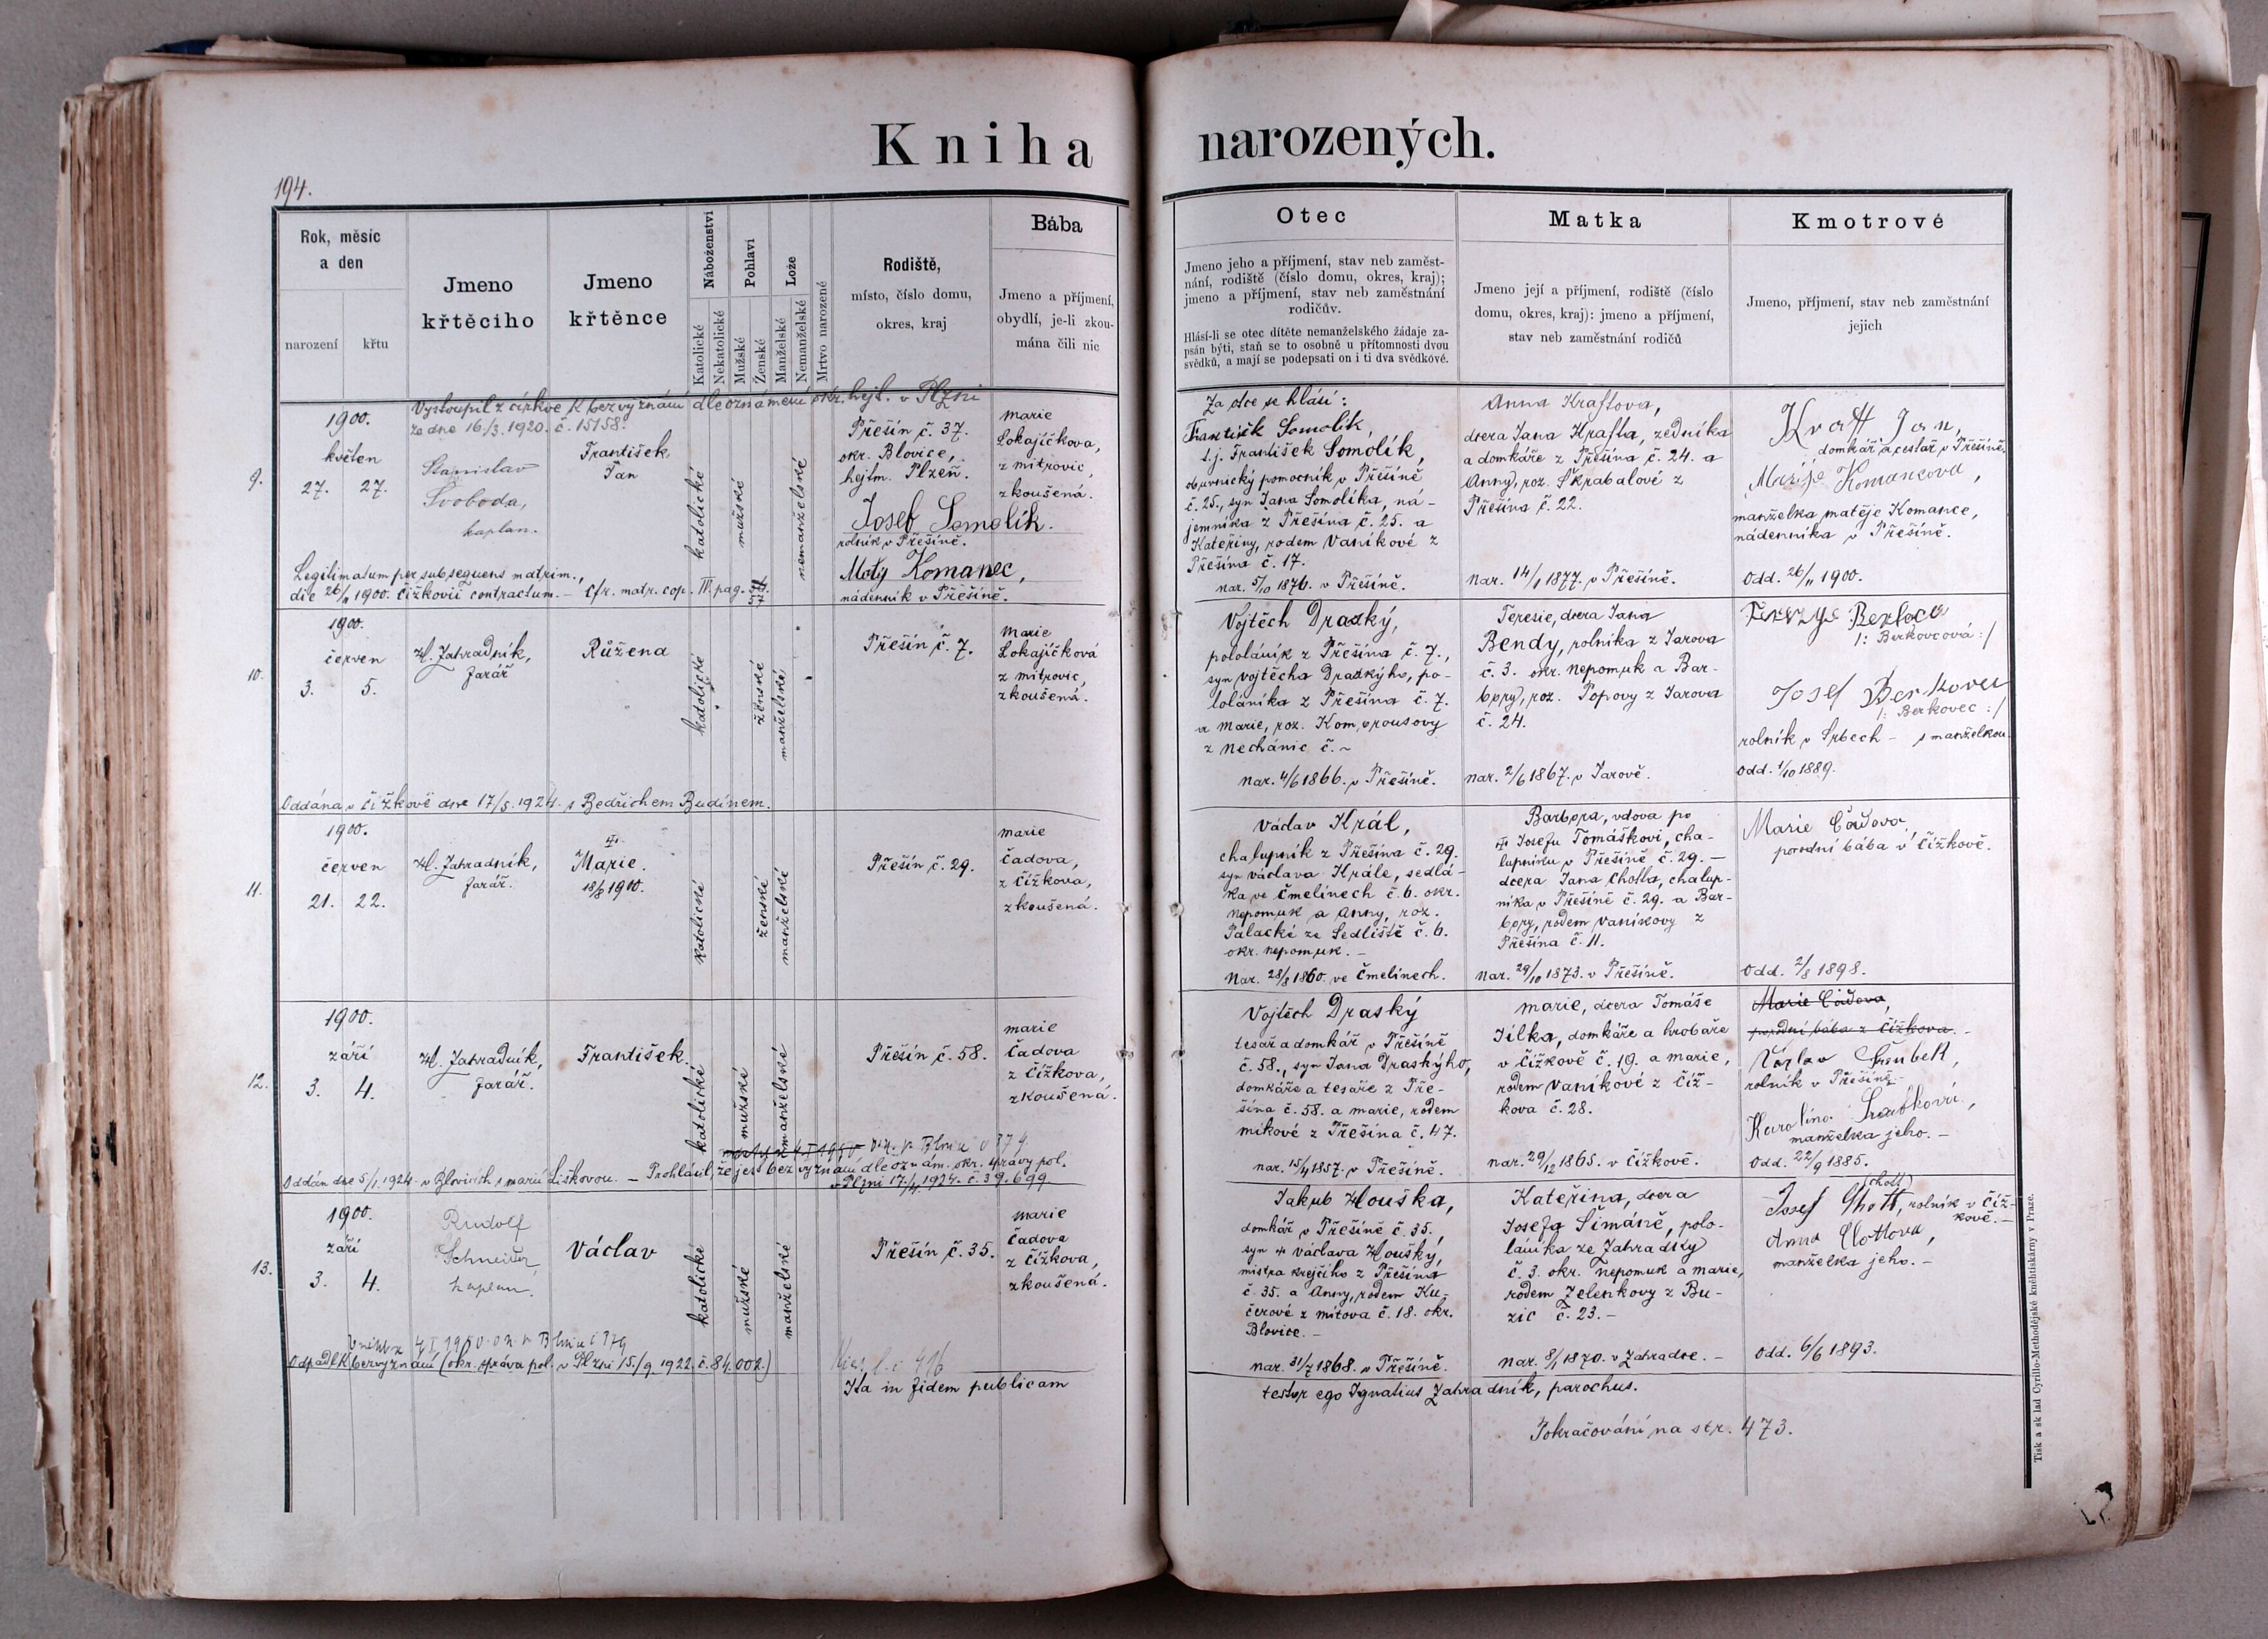 Kniha narozených.
194.
Rok, měsíc
a den
narození
křtu
Jmeno
křtěcího
Jmeno
křtěnce
Náboženství
Katolické
Nekatolické
Pohlaví
Mužské
Ženské
Lože
Manželské
Nemanželské
Mrtvo narozené
Rodiště,
místo, číslo domu,
okres, kraj
Bába
Jmeno a příjmení,
obydlí, je-li zkou-
mána čili nic
Otec
Jmeno jeho a příjmení, stav neb zaměst-
nání, rodiště (číslo domu, okres, kraj);
jmeno a příjmení, stav neb zaměstnání
rodičův.
Hlásí-li se otec dítěte nemanželského žádaje za-
psán býti, staň se to osobně u přítomnosti dvou
svědků, a mají se podepsati on i ti dva svědkové.
Matka
Jmeno její a příjmení, rodiště (číslo
domu, okres, kraj): jmeno a příjmení,
stav neb zaměstnání rodičů
Kmotrové
Jmeno, příjmení, stav neb zaměstnání
jejich
Vystoupil z církve k bezvyznání dle oznámení okr. hejt. v Plzni
ze dne 16./3. 1920. č. 15158.
9.
1900.
květen
27. 27.
Stanislav
Svoboda,
kaplan.
František
Jan
katolické
mužské
nemanželské
Přešín č. 37.
okr. Blovice,
hejtm. Plzeň.
Josef Somolík.
rolník v Přešíně.
Matěj Komanec,
nádenník v Přešíně.
Marie
Lokajíčkova,
z Mitrovic,
zkoušená.
Legitimatum per subsequens matrim.,
die 26/11 1900. Čížkovii contractum. - Cfr. matr. cop. III. pag.
Za otce se hlásí:
František Somolík,
t.j. František Somolík,
obuvnický pomocník v Přešíně
č. 25., syn Jana Somolíka, ná-
jemníka z Přešína č. 25. a
Kateřiny, rodem Vaníkové z
Přešína č. 17.
nar. 5/10 1876. v Přešíně.
Anna Kraftova,
dcera Jana Krafta, zedníka
a domkáře z Přešína č. 24. a
Anny, roz. Škrabalové z
Přešína č. 22.
Nar. 14/1 1877. v Přešíně.
Kraft Jan,
domkář a cestář v Přešíně.
Marije Komancova,
manželka Matěje Komance,
nádenníka v Přešíně.
Odd. 26/11 1900.
10.
1900.
červen
3. 5.
H. Zahradník,
farář
Růžena
katolické
ženské
manželské
Přešín č. 7.
Marie
Lokajíčková
z Mitrovic,
zkoušená.
Oddána v Čížkově dne 17/5. 1924. s Bedřichem Budínem.
Vojtěch Drazký,
pololáník z Přešína č. 7.,
syn Vojtěcha Drazkýho, po-
loláníka z Přešína č. 7.
a Marie, roz. Komprousovy
z Nechánic č. ~
nar. 4/6 1866. v Přešíně.
Teresie, dcera Jana
Bendy, rolníka z Jarova
č. 3. okr. Nepomuk a Bar-
bory, roz. Popovy z Jarova
č. 24.
nar. 2/6 1867. v Jarově.
/: Berkovcová :/
Josef Berkovec
/: Berkovec :/
rolník v Srbech - s manželkou.
Odd. 1/10 1889.
11.
1900.
červen
21. 22.
H. Zahradník,
farář.
Marie.
18/8 1910.
katolické
ženské
manželské
Přešín č. 29.
Marie
Čadova,
z Čížkova,
zkoušená.
Václav Král,
chalupník z Přešína č. 29.
syn Václava Krále, sedlá-
ka ve Čmelínech č. 6. okr.
Nepomuk a Anny, roz.
Palacké ze Sedliště č. 6.
okr. Nepomuk. -
Nar. 28/8 1860. ve Čmelínech.
Barbora, vdova po
Josefu Tomáškovi, cha-
lupníku v Přešíně č. 29. -
dcera Jana Chotta, chalup-
níka v Přešíně č. 29. a Bar-
bory, rodem Vaníkovy z
Přešína č. 11.
nar. 29/10 1873. v Přešíně.
Marie Čadova,
porodní bába v Čížkově.
Odd. 2/8 1898.
12.
1900.
září
3. 4.
H. Zahradník,
farář.
František.
katolické
mužské
manželské
Přešín č. 58.
Marie
Čadova
z Čížkova,
zkoušená.
Oddán dne 5/1. 1924. v Blovicích s Marií Liškovou. - Prohlásil, že jest bez vyznání dle oznám. okr. správy pol.
v Plzni 17./4. 1924. č. 39.699.
Vojtěch Draský
tesař a domkář v Přešíně
č. 58., syn Jana Draskýho,
domkáře a tesaře z Pře-
šína č. 58. a Marie, rodem
Míkové z Přešína č. 47.
nar. 15/4 1857. v Přešíně.
Marie, dcera Tomáše
Jílka, domkáře a hrobaře
v Čížkově č. 19. a Marie,
rodem Vaníkové z Číž-
kova č. 28.
nar. 29/12 1865. v Čížkově.
Marie Čadova,
porodní bába z Čížkova. -
Václav
rolník v Přešíně
Karolina
manželka jeho. -
Odd. 22/9 1885.
13.
1900.
září
3. 4.
Rudolf
Schneider
kaplan.
Václav
katolické
mužské
manželské
Přešín č. 35.
Marie
Čadova
z Čížkova,
zkoušená.
Odpadl k bezvyznání (okr. správa pol. v Plzni 15./9. 1922. č. 84.002.)
Jakub Houška,
domkář v Přešíně č. 35.,
syn Václava Houšky,
mistra krejčího z Přešína
č. 35. a Anny, rodem Ku-
čerové z Mítova č. 18. okr.
Blovice. -
nar. 31/7 1868. v Přešíně.
Kateřina, dcera
Josefa Šimáně, polo-
láníka ze Zahradky
č. 3. okr. Nepomuk a Marie,
rodem Zelenkovy z Bu-
zic č. 23. -
Nar. 8/1 1870. v Zahradce. -
(Chott)
Josef Chott, rolník v Číž-
kově. -
Anna Chottova,
manželka jeho. -
Odd. 6/6 1893.
Ita in fidem publicam
testor ego Ignatius Zahradník, parochus.
Pokračování na str. 473.
Tisk a sklad Cyrillo-Methodějské kněhtiskárny v Praze.